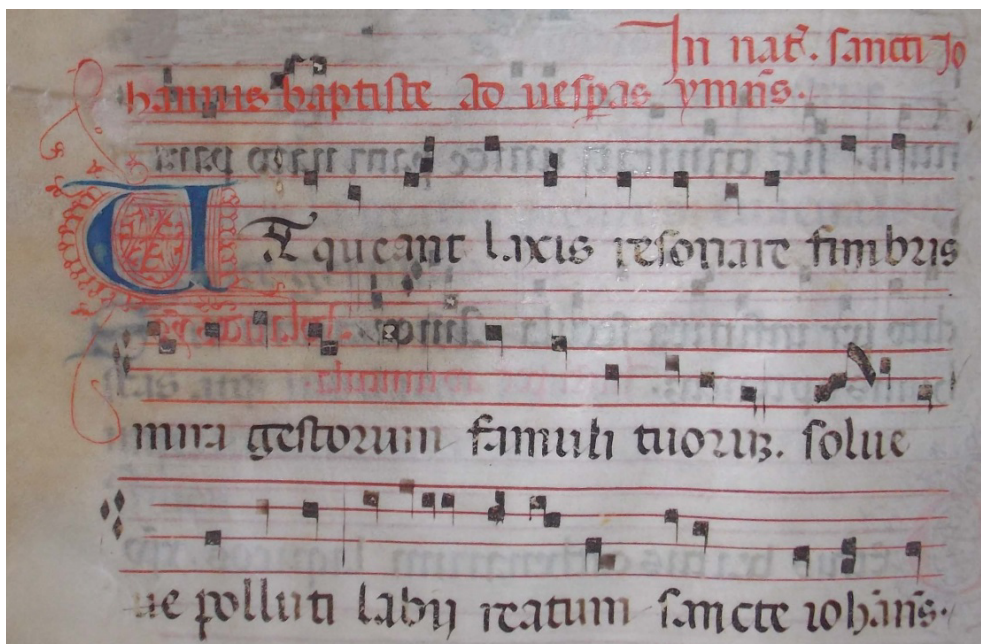 In nat̄. sancti Jo
hannis baptiste ad uesperas ymn̄s.
UT queant laxis resonare fimbris
mira gestorum famuli tuorꝝ. solue
ue polluti labij reatum sancte ioħan̄s.